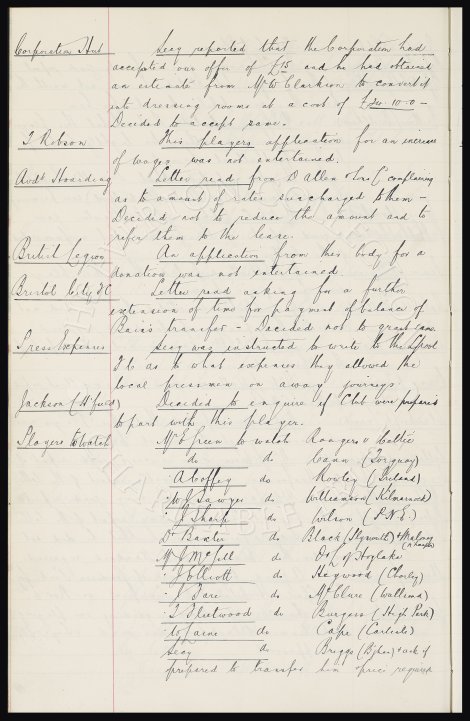 Corporation Hut Secy reported that the Corporation had
accepted our offer of £15 and he had obtained
an estimate from Mr W. Clarkson to convert it
into dressing rooms at a cost of £20-10-0 -
Decided to accept same.
T. Robson This players application for an increase
of wages was not entertained.
Advt Hoarding Letter read from D Allen & Sons complaining
as to amount of rates surcharged to them -
Decided not to reduce the amount and to
refer them to the lease.
British Legion An application from this body for a
donation was not entertained
Bristol City F.C. Letter read asking for a further
extension of time for payment of balance of
Bain's transfer - Decided not to grant same.
Press Expenses Secy was instructed to write to the L'pool
F.C. as to what expenses they allowed the
local pressmen on away journeys
Jackson (H'field) Decided to enquire if Club were prepared
to part with this player.
Players to Watch Mr E Green to watch Rangers v Celtic
do do Cann (Torquay)
" A Coffey do Rowley (Ireland)
" W J Sawyer do Williamson (Kilmarnock)
" J Sharp do Wilson (P.N.E.)
Dr Baxter do Black (Flywell) & Maloney
Mr J McGill do of Hoylake
" J Elliott do Heywood (Chorley)
" J Fare do McClure (Wallsend)
" T Fleetwood do Burgess (High Park)
" W Cairns do Cape (Carlisle)
Secy do Briggs & ask if
prepared to transfer him & price required